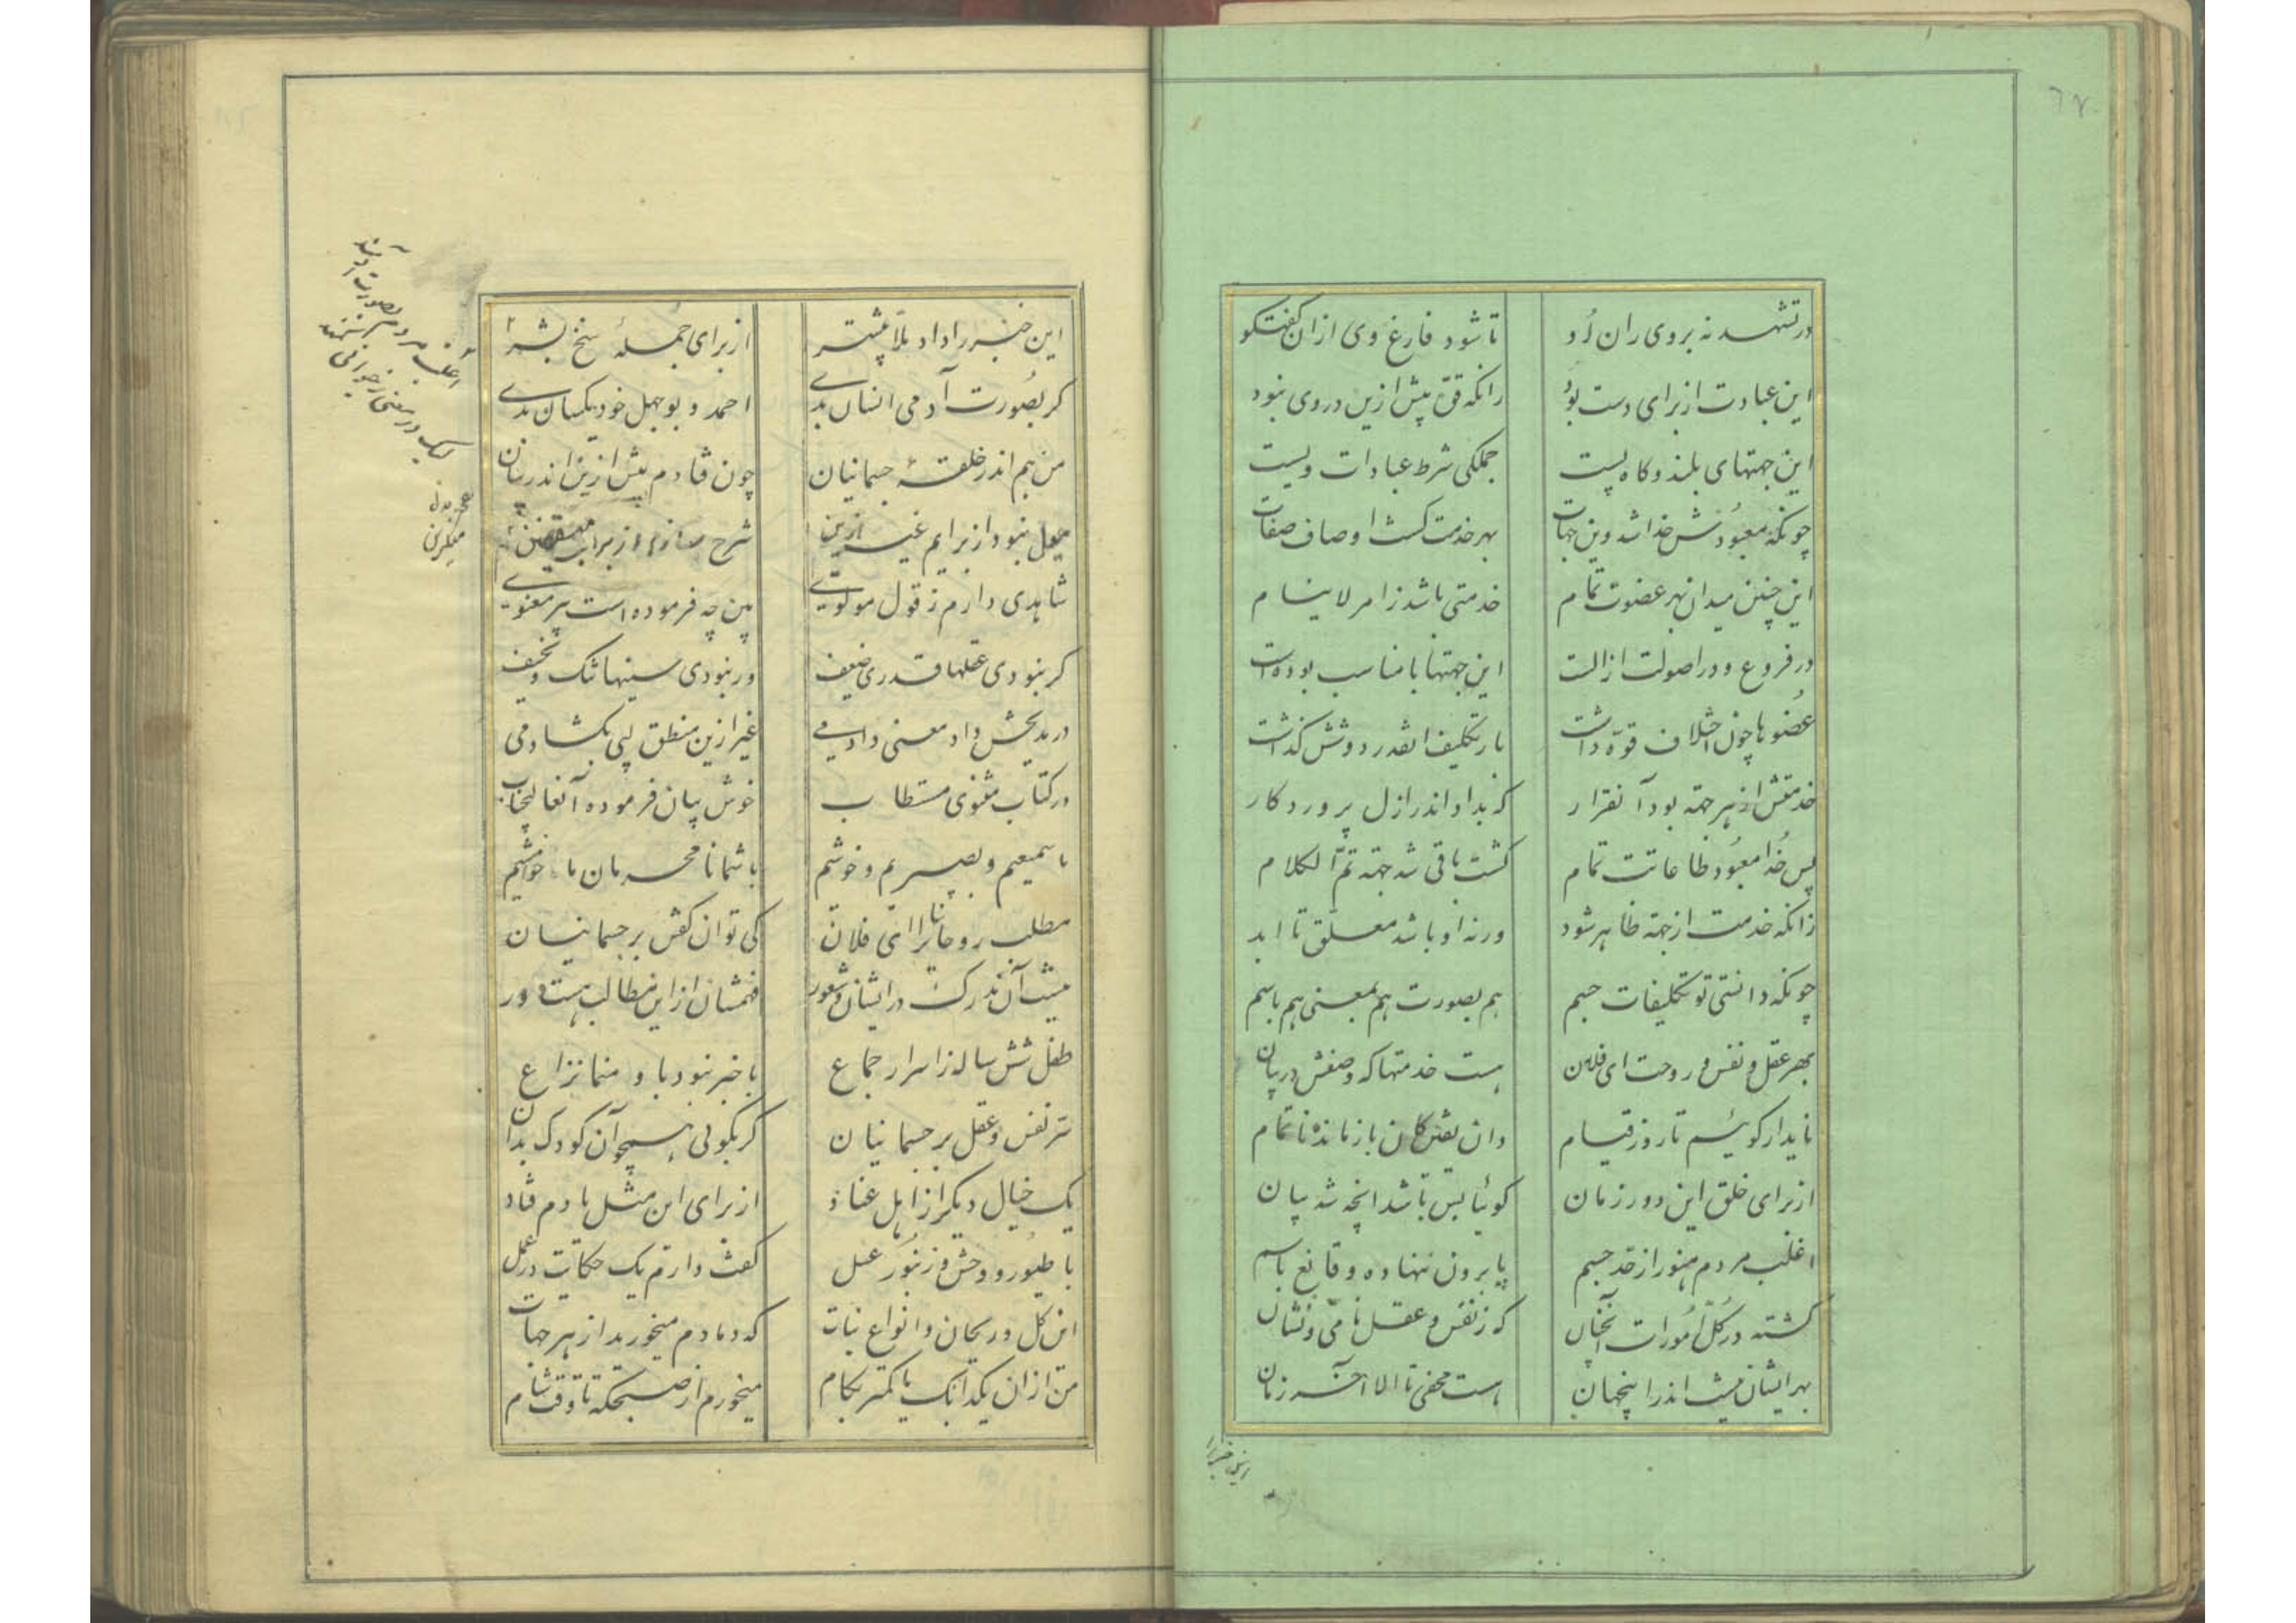 ۶۷
در تشهد نه بروی ران دُو
تا شود فارغ وی ازان کفتکو
این عبادت از برای دست بوُد
زانکه قوّ پیش ازین در وی نبود
این جهتهای بلند و کاه پست
جملکی شرط عبادات ویست
چونکه معبُودش خدا شد وین جهات
بهر خدمت کشت اوصاف صفات
این چنین میدان بهر عضوت تمام
خدمتی باشد ز امر لاینام
در فروع و در اصولت از الت
این جهتها با مناسب بوده‌است
عضُوها چون اختلاف قوّه داشت
بار تکلیف انقدر دوشش کذاشت
خدمتش از هر جهة بود آنقرار
که بداو اندر ازل پروردکار
پس خُدا معبُود طاعاتت تمام
کشت باقی شد جهة تمّ الکلام
زانکه خدمت از جهة ظاهر شود
ورنه او باشد معلّق تا ابد
چونکه دانستی تو تکلیفات جسم
هم بصورت هم بمعنی هم باسم
بهر عقل و نفس و روحت ای فلان
هست خدمتها که وصفش در بیان
ناید ار کوئیم تا روز قیام
وان یقین کان باز مانده ناتمام
از برای خلق این دور زمان
کوئیا بس باشد انچه شد بیان
اغلب مردم هنوز از حد جسم
پا برون ننهاده و قانع باسم
کشته در کلّ اُمورات آنچنان
که ز نفس و عقل نامی و نشان
بهر ایشان نیست اندر اینجهان
هست مخفی تا الا آخر زمان
این خبر را
این خبر را داد ملّا پیشتر
از برای جُملهٔ سنخ بشر
کر بصُورت آدمی انسان بدے
احمد و بوجهل خود یکسان بدے
من هم اندر خلقت جسمانیان
چون فتادم پیش ازین اندر بیان
میل نبود از برایم غیر ازین
شرح سازم از برای
شاهدی دارم ز قول مولوے
بین چه فرموده است پیر معنوے
کر نبودی عقلها قدری ضعیف
ور نبودی سینها تنک و نحیف
در مدیحش داد معنی دادمے
غیر ازین منطق لبی بکشادمی
در کتاب مثنوی مستطاب
خوش بیان فرموده آنعالیجناب
ما سمیعیم و بصیریم و خوشیم
با شما نامحرمان ما خامشیم
مطلب روحانیان را ای فلان
کی توان کفتن بر جسمانیان
نیست آن مدرک در ایشان و شعور
فهمشان از این مطالب هست دور
طفل شش ساله ز اسرار جماع
با خبر نبود با و منما نزاع
سّر نفس و عقل بر جسمانیان
کر بکوئی همچو آن کودک بدان
یک خیال دیکر از اهل عناد
از برای این مثل یادم فتاد
با طیور و وحش و زنبُور عسل
کفت دارم یک حکایت در عمل
این کل و ریحان و انواع نبات
که دمادم میخورید از هر جهات
من ازان یکدانک یا کمتر بکام
میخورم از صبحکه تا وقت شام
اغلب مردم بصورت آدمند
لیک در معنی ز حیوانی